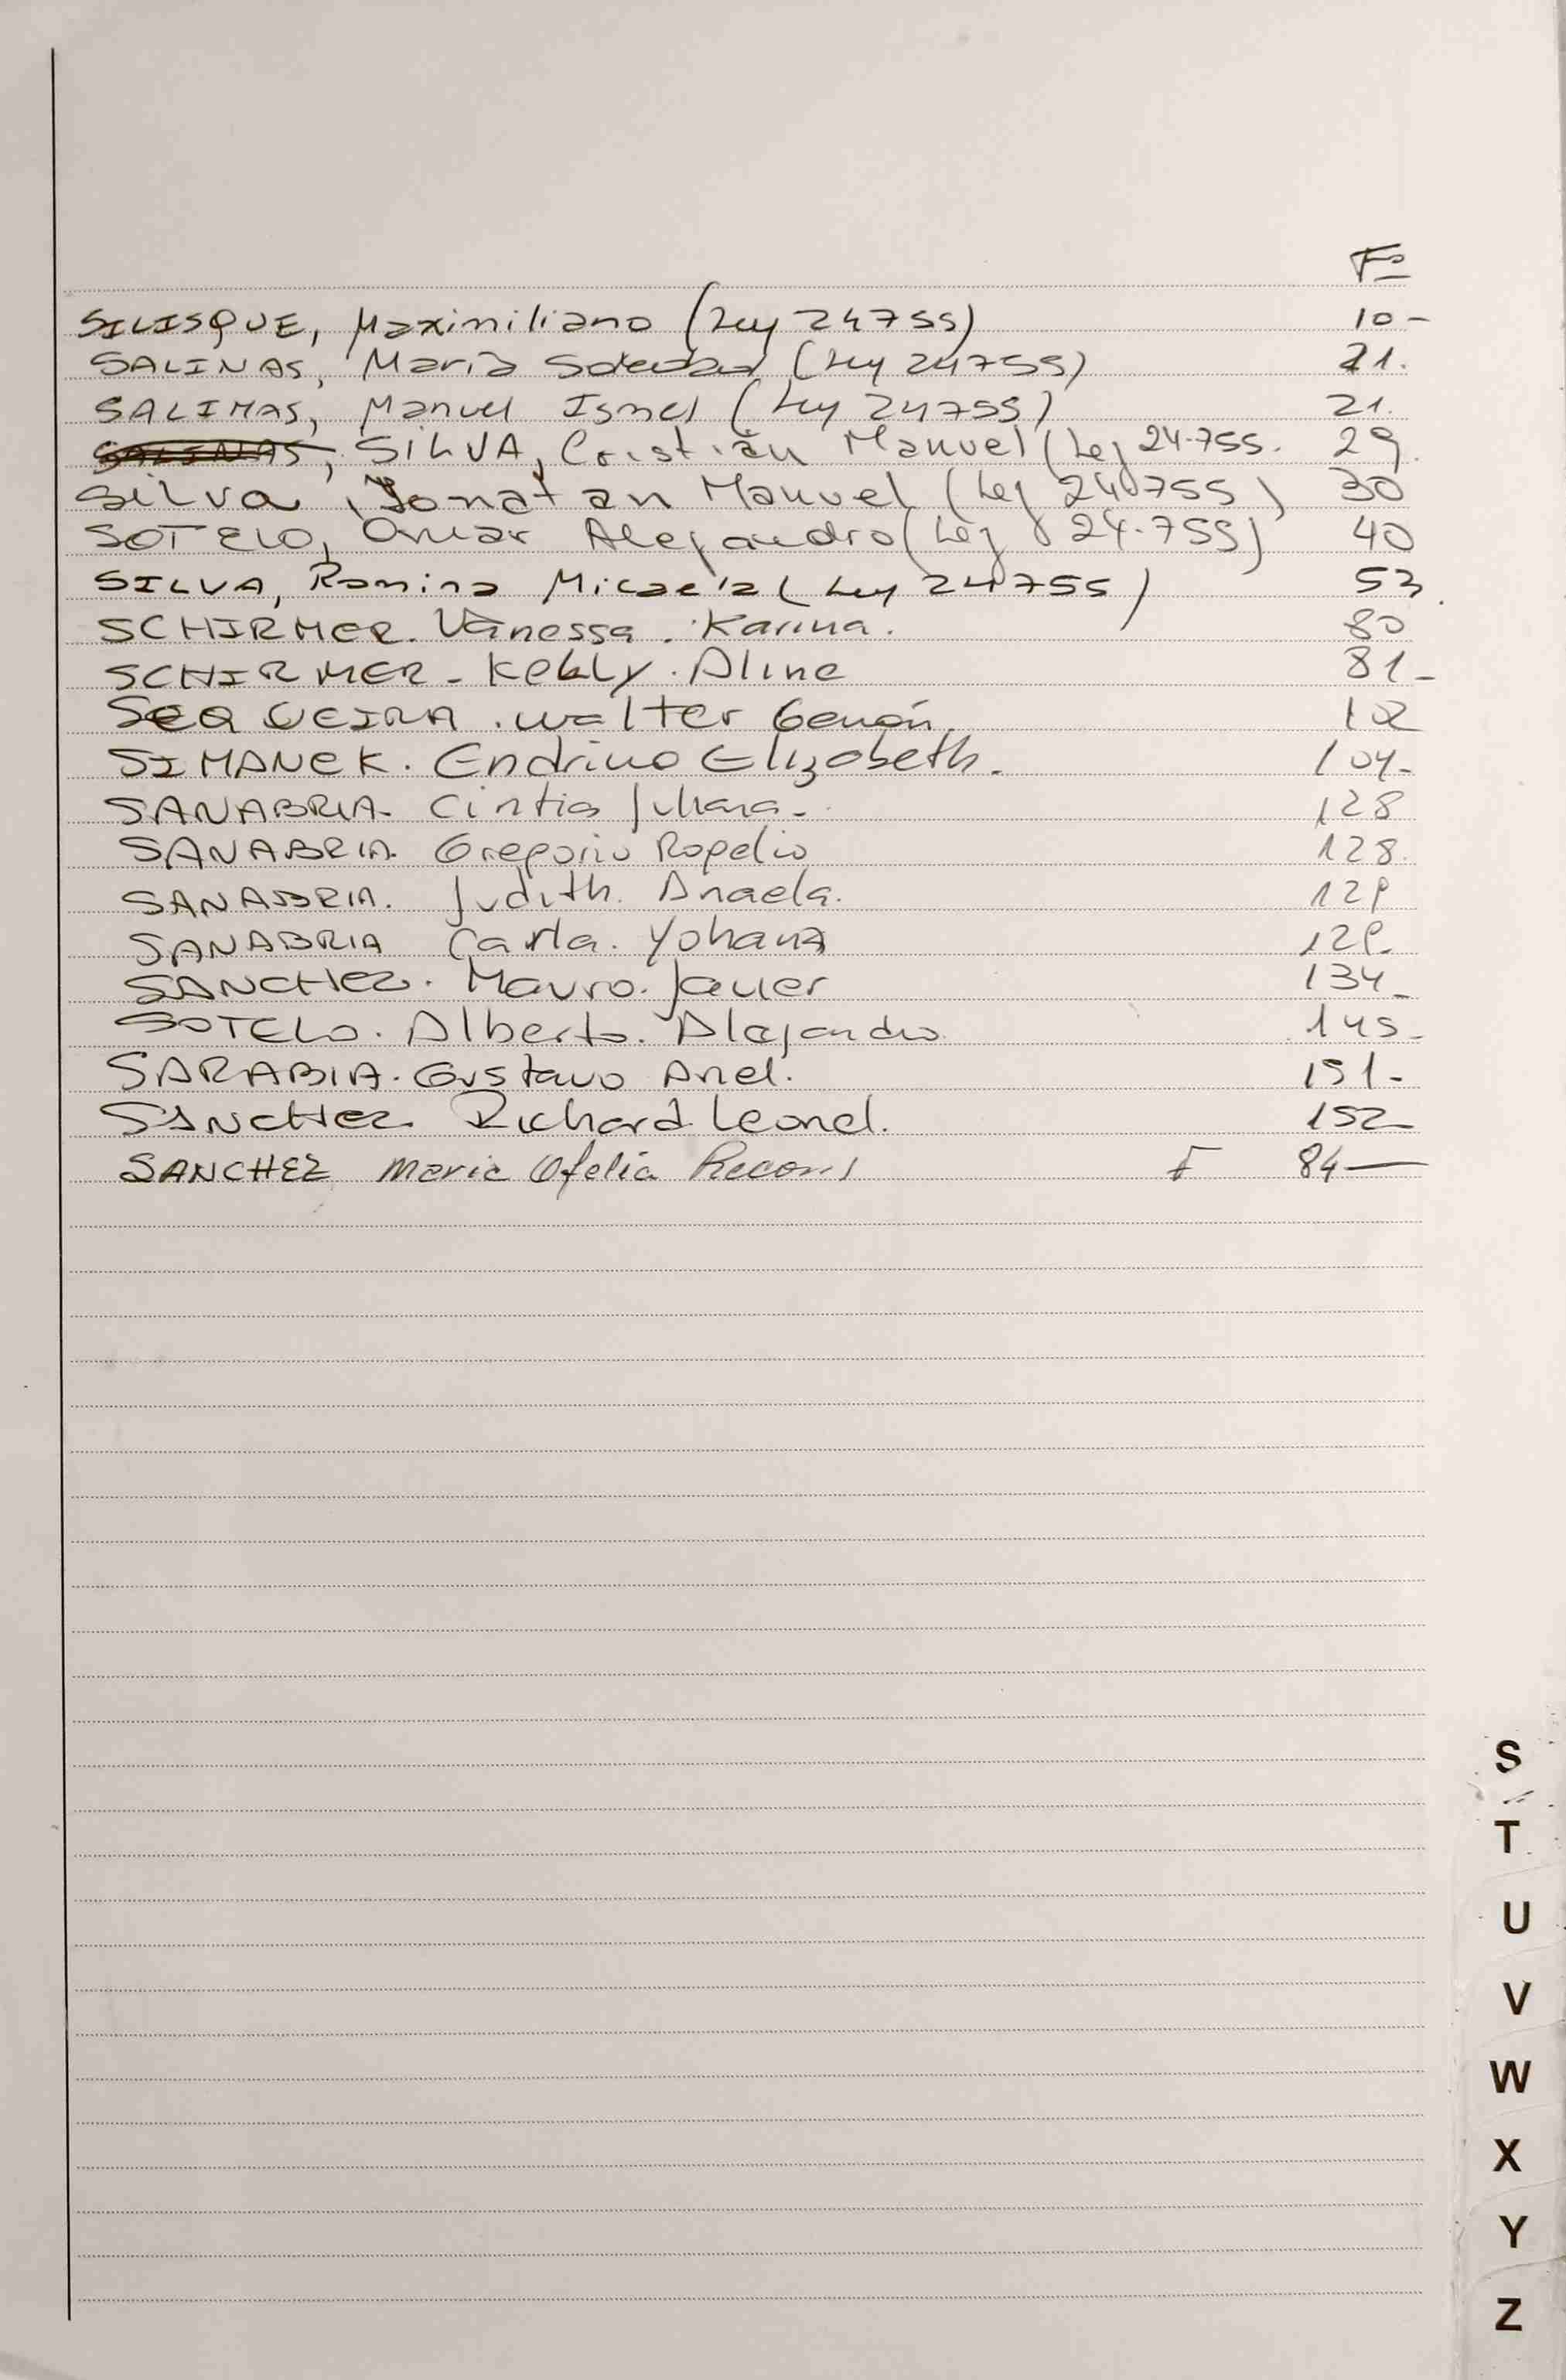 Fº
SILISQUE, Maximiliano (Ley 24755) 10-
SALINAS, Maria Soledad (Ley 24755) 21.
SALINAS, Manuel Ismel (Ley 24755) 21.
SALINAS, SILVA, Cristian Manuel (Ley 24.755. 29.
Silva, Jonatan Manuel (Ley 24755) 30
SOTELO, Omar Alejandro (Ley 24.755) 40
SILVA, Romina Micaela (Ley 24755) 53.
SCHIRMER. Vanessa. Karina. 80
SCHIRMER - Kelly. Aline 81-
SEQUEIRA. Walter 102
SIMANEK. Endrino Elizabeth. 104-
SANABRIA. Cintia Juliana. 128
SANABRIA Gregorio Rogelio 128.
SANABRIA. Judith. Anaela. 129
SANABRIA Carla. Yohana 129.
SANCHEZ. Mauro. Javier 134-
SOTELO. Alberto. Alejandro 145-
SARABIA. Gustavo Ariel. 151-
SANCHEZ Richard Leonel. 152-
SANCHEZ Maria Ofelia F 84-
S
T
U
V
W
X
Y
Z